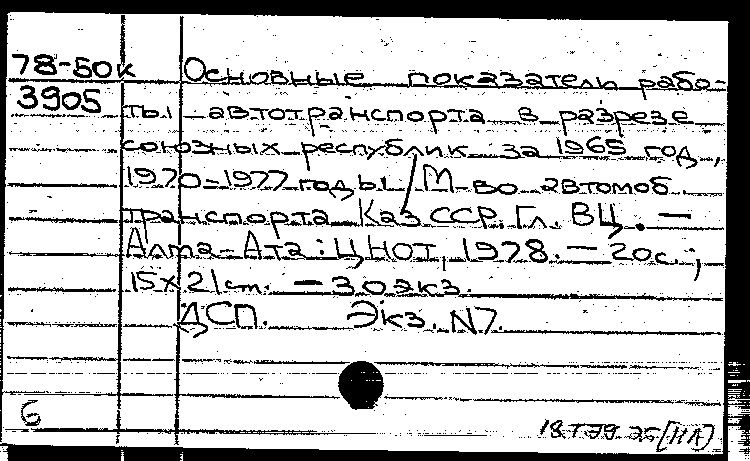 78-50к Основные показатель рабо-
3905 ты автотранспорта в разрезе
союзных республик за 1965 год,
1970-1977 годы / М-во автомоб.
транспорта Каз ССР. Гл. ВЦ. —
Алма-Ата: ЦНОТ, 1978. — 20с.;
15х21см. — 30экз.
ДСП. Экз. N7.
6